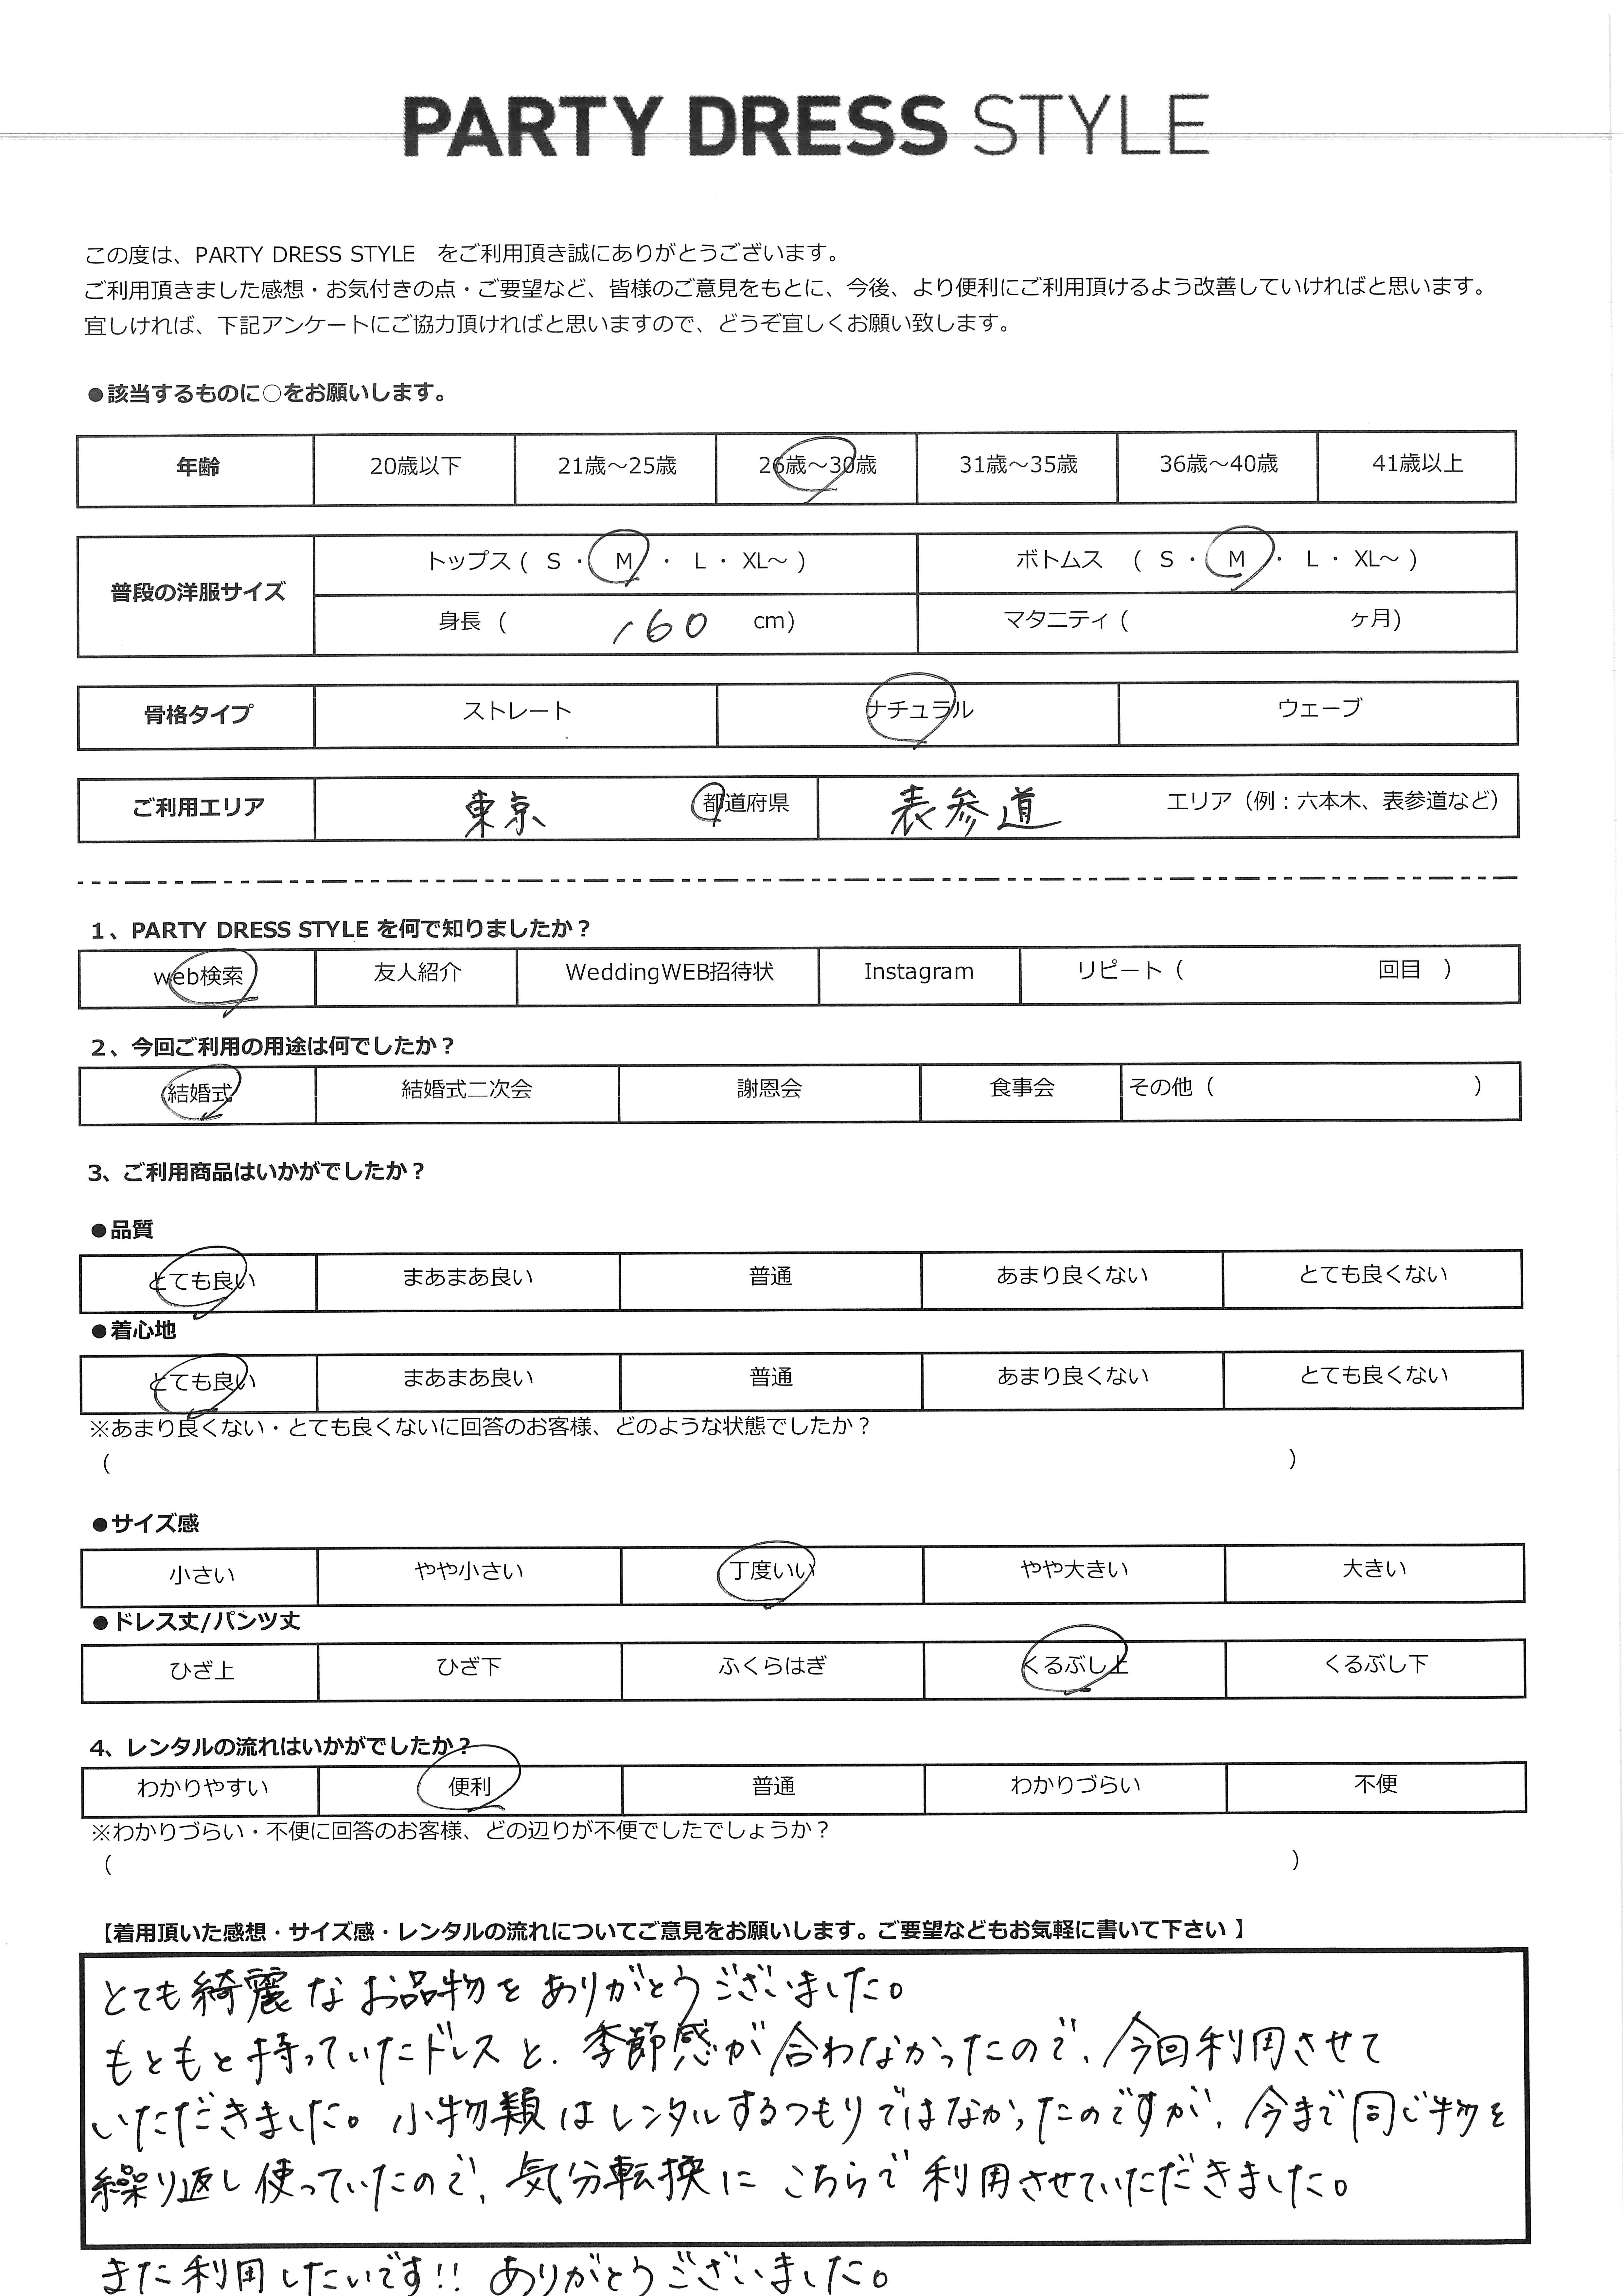 PARTY DRESS STYLE
この度は、PARTY DRESS STYLE をご利用頂き誠にありがとうございます。
ご利用頂きました感想・お気付きの点・ご要望など、皆様のご意見をもとに、今後、より便利にご利用頂けるよう改善していければと思います。
宜しければ、下記アンケートにご協力頂ければと思いますので、どうぞ宜しくお願い致します。
●該当するものに○をお願いします。
年齢 20歳以下 21歳～25歳 26歳～30歳 31歳～35歳 36歳～40歳 41歳以上
普段の洋服サイズ
トップス ( S ・ M ・ L ・ XL～ ) ボトムス ( S ・ M ・ L ・ XL～ )
身長 ( 160 cm) マタニティ ( ヶ月)
骨格タイプ ストレート ナチュラル ウェーブ
ご利用エリア 東京 都道府県 表参道 エリア（例：六本木、表参道など）
1、PARTY DRESS STYLE を何で知りましたか？
web検索 友人紹介 WeddingWEB招待状 Instagram リピート（ 回目 ）
2、今回ご利用の用途は何でしたか？
結婚式 結婚式二次会 謝恩会 食事会 その他（ ）
3、ご利用商品はいかがでしたか？
●品質
とても良い まあまあ良い 普通 あまり良くない とても良くない
●着心地
とても良い まあまあ良い 普通 あまり良くない とても良くない
※あまり良くない・とても良くないに回答のお客様、どのような状態でしたか？
（ ）
●サイズ感
小さい やや小さい 丁度いい やや大きい 大きい
●ドレス丈/パンツ丈
ひざ上 ひざ下 ふくらはぎ くるぶし上 くるぶし下
4、レンタルの流れはいかがでしたか？
わかりやすい 便利 普通 わかりづらい 不便
※わかりづらい・不便に回答のお客様、どの辺りが不便でしたでしょうか？
（ ）
【着用頂いた感想・サイズ感・レンタルの流れについてご意見をお願いします。ご要望などもお気軽に書いて下さい 】
とても綺麗なお品物をありがとうございました。
もともと持っていたドレスと、季節感が合わなかったので、今回利用させて
いただきました。小物類はレンタルするつもりではなかったのですが、今まで同じ物を
繰り返し使っていたので、気分転換にこちらで利用させていただきました。
また利用したいです!! ありがとうございました。